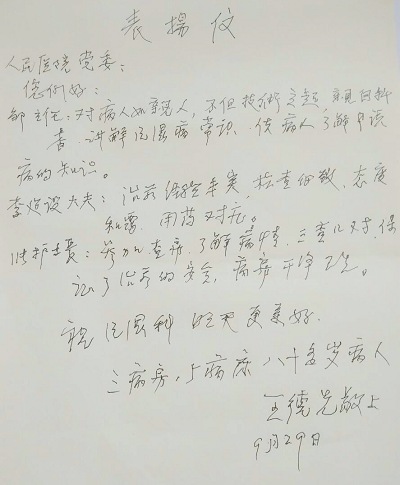 表揚仪
人民医院党委：
您们好：
邹主任：对病人如亲人，不但技术交超 亲自科
普、讲解风湿病常识、使病人了解
病的知识。
李 大夫：治疗经验丰实、检查细致、态度
和蔼、用药对症。
护士长：参加查房、了解病情、三查八对、保
证了治疗的安全，病房干净卫生。
祝风湿科 明天更美好.
三病房，5病床 八十多岁病人
王德先敬上
9月29日